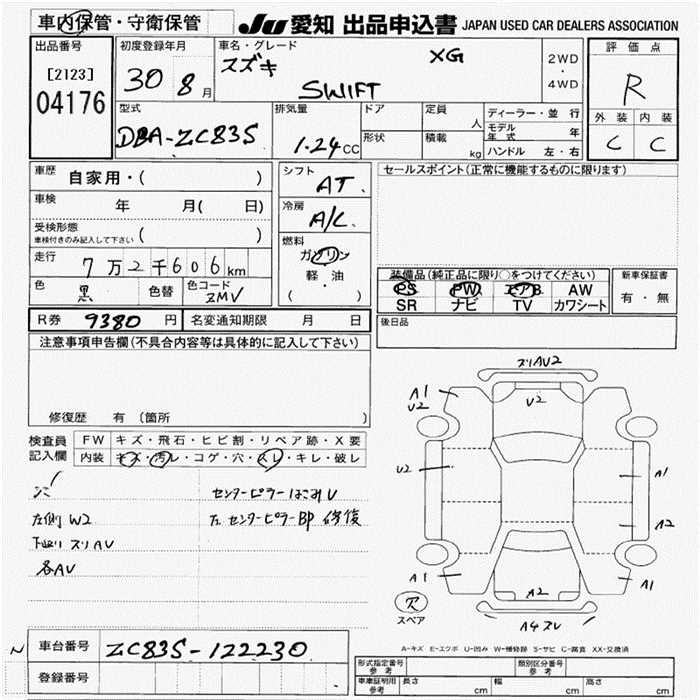 車内保管・守衛保管
JU 愛知 出品申込書 JAPAN USED CAR DEALERS ASSOCIATION
出品番号
[2123]
04176
初度登録年月
30 8月
車名・グレード
スズキ SWIFT XG
2WD
・
4WD
評価点
R
外装 内装
C C
型式
DBA-ZC83S
排気量
1.24cc
ドア
形状
定員 人
積載 kg
ディーラー・並行
モデル年式 年
ハンドル 左・右
車歴 自家用・( )
車検 年 月( 日)
受検形態
車検付きのみ記入して下さい ( )
走行 7万2千606km
色 黒 色替 色コード ZMV
シフト AT
冷房 A/C
燃料
ガソリン
軽・油
( ・ )
セールスポイント(正常に機能するものに限ります)
装備品(純正品に限り○をつけてください)
PS PW エアB AW
SR ナビ TV カワシート
新車保証書
有・無
R券 9380円 名変通知期限 月 日
後日品
注意事項申告欄(不具合内容等は具体的に記入して下さい)
修復歴 有 (箇所 )
検査員記入欄
FW キズ・飛石・ヒビ割・リペア跡・X要
内装 キズ・汚レ・コゲ・穴・スレ・キレ・破レ
センターピラーはこみU
左側 W2
左 センターピラーBP 修復
下廻り スリAU
各AU
スリAU2
A1
U2
U2
U2
A1
A2
A1
A2
A1
A4 スレ
穴
スペア
A-キズ E-エクボ U-凹み W-補修跡 S-サビ C-腐食 XX-交換済
N
車台番号 ZC83S-122230
登録番号
形式指定番号 参考
類別区分番号 参考
車庫証明用 参考
長さ cm
幅 cm
高さ cm